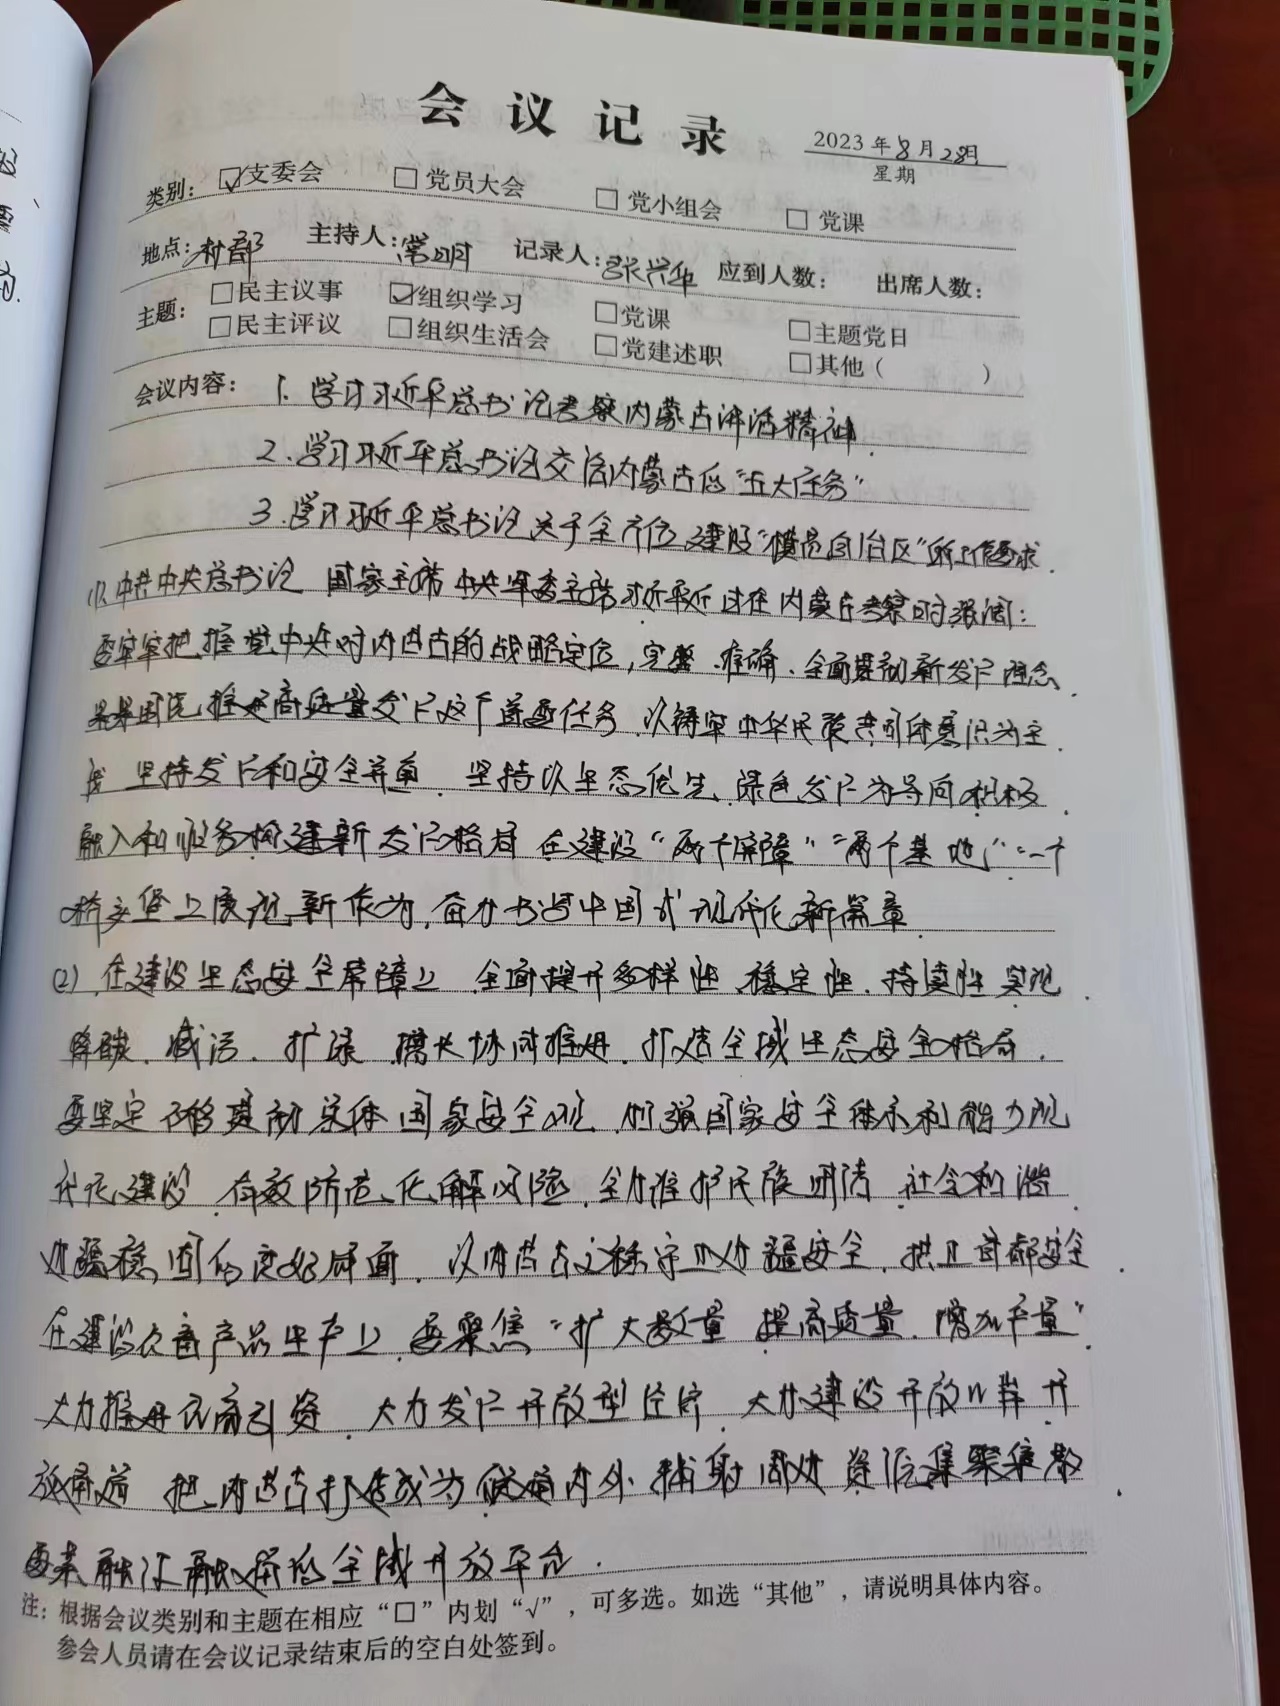 会议记录
2023年8月28日
星期
类别: ☑支委会 □党员大会 □党小组会 □党课
地点:村部 主持人:常明 记录人:张兴华 应到人数: 出席人数:
主题: □民主议事 ☑组织学习 □党课 □主题党日
□民主评议 □组织生活会 □党建述职 □其他( )
会议内容: 1.学习习近平总书记考察内蒙古讲话精神.
2.学习习近平总书记交给内蒙古的“五大任务”
3.学习习近平总书记关于全方位建设“模范自治区”的工作要求.
(1)、中共中央总书记 国家主席 中央军委主席习近平近日在内蒙古考察时强调:
要牢牢把握党中央对内蒙古的战略定位,完整、准确、全面贯彻新发展理念.
紧紧围绕推进高质量发展这个首要任务.以铸牢中华民族共同体意识为主.
线 坚持发展和安全并重.坚持以生态优先、绿色发展为导向 积极.
融入和服务构建新发展格局 在建设“两个屏障”“两个基地”“一个
桥头堡上展现新作为,奋力书写中国式现代化新篇章.
(2)、在建设生态安全屏障上 全面提升多样性、稳定性、持续性 实现.
降碳、减污、扩绿、增长协同推进、打造全域生态安全格局.
要坚定不移贯彻总体国家安全观、加强国家安全体系和能力现
代化建设.有效防范化解风险.全力维护民族团结 社会和谐.
边疆稳固的良好局面.以内蒙古之稳守卫边疆安全.拱卫首都安全.
在建设农畜产品生产上、要聚焦“扩大数量 提高质量、增加产量”
大力推进招商引资.大力发展开放型经济.大力建设开放口岸 开
放通道 把内蒙古打造成为 联通内外 辐射周边 资源集聚集散.
要素融汇融通的全域开放平台.
注:根据会议类别和主题在相应“□”内划“√”,可多选。如选“其他”,请说明具体内容。
参会人员请在会议记录结束后的空白处签到。